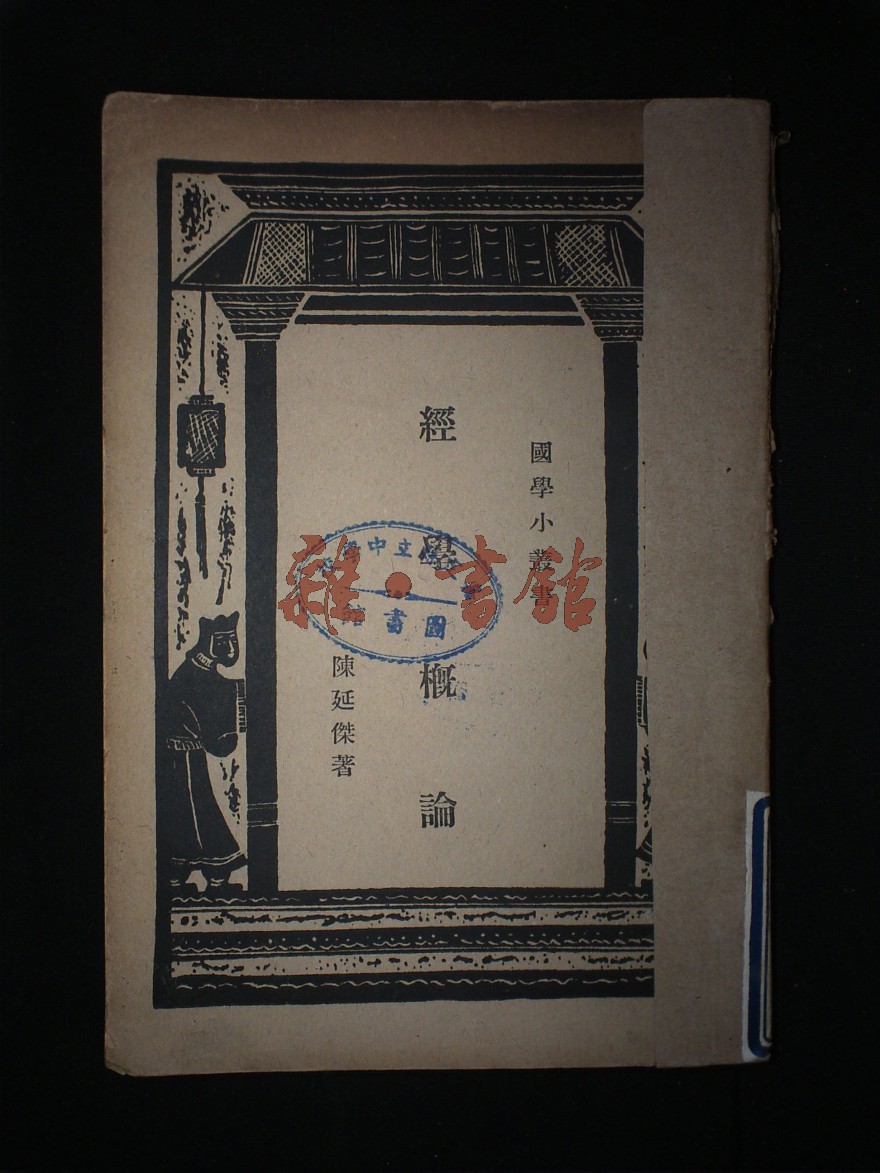 國學小叢書
經學概論
陳延傑著
雜·書館
立中
圖書館